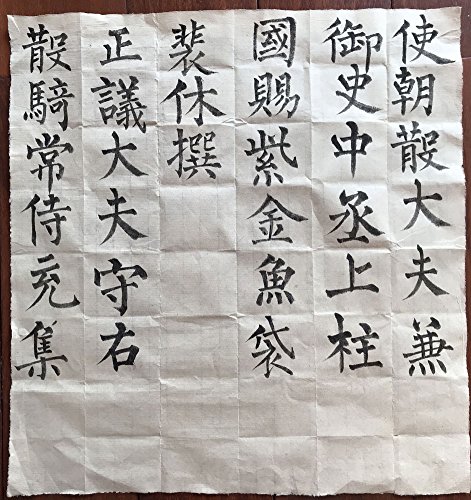 使朝散大夫兼
御史中丞上柱
國賜紫金魚袋
裴休撰
正議大夫守右
散騎常侍充集